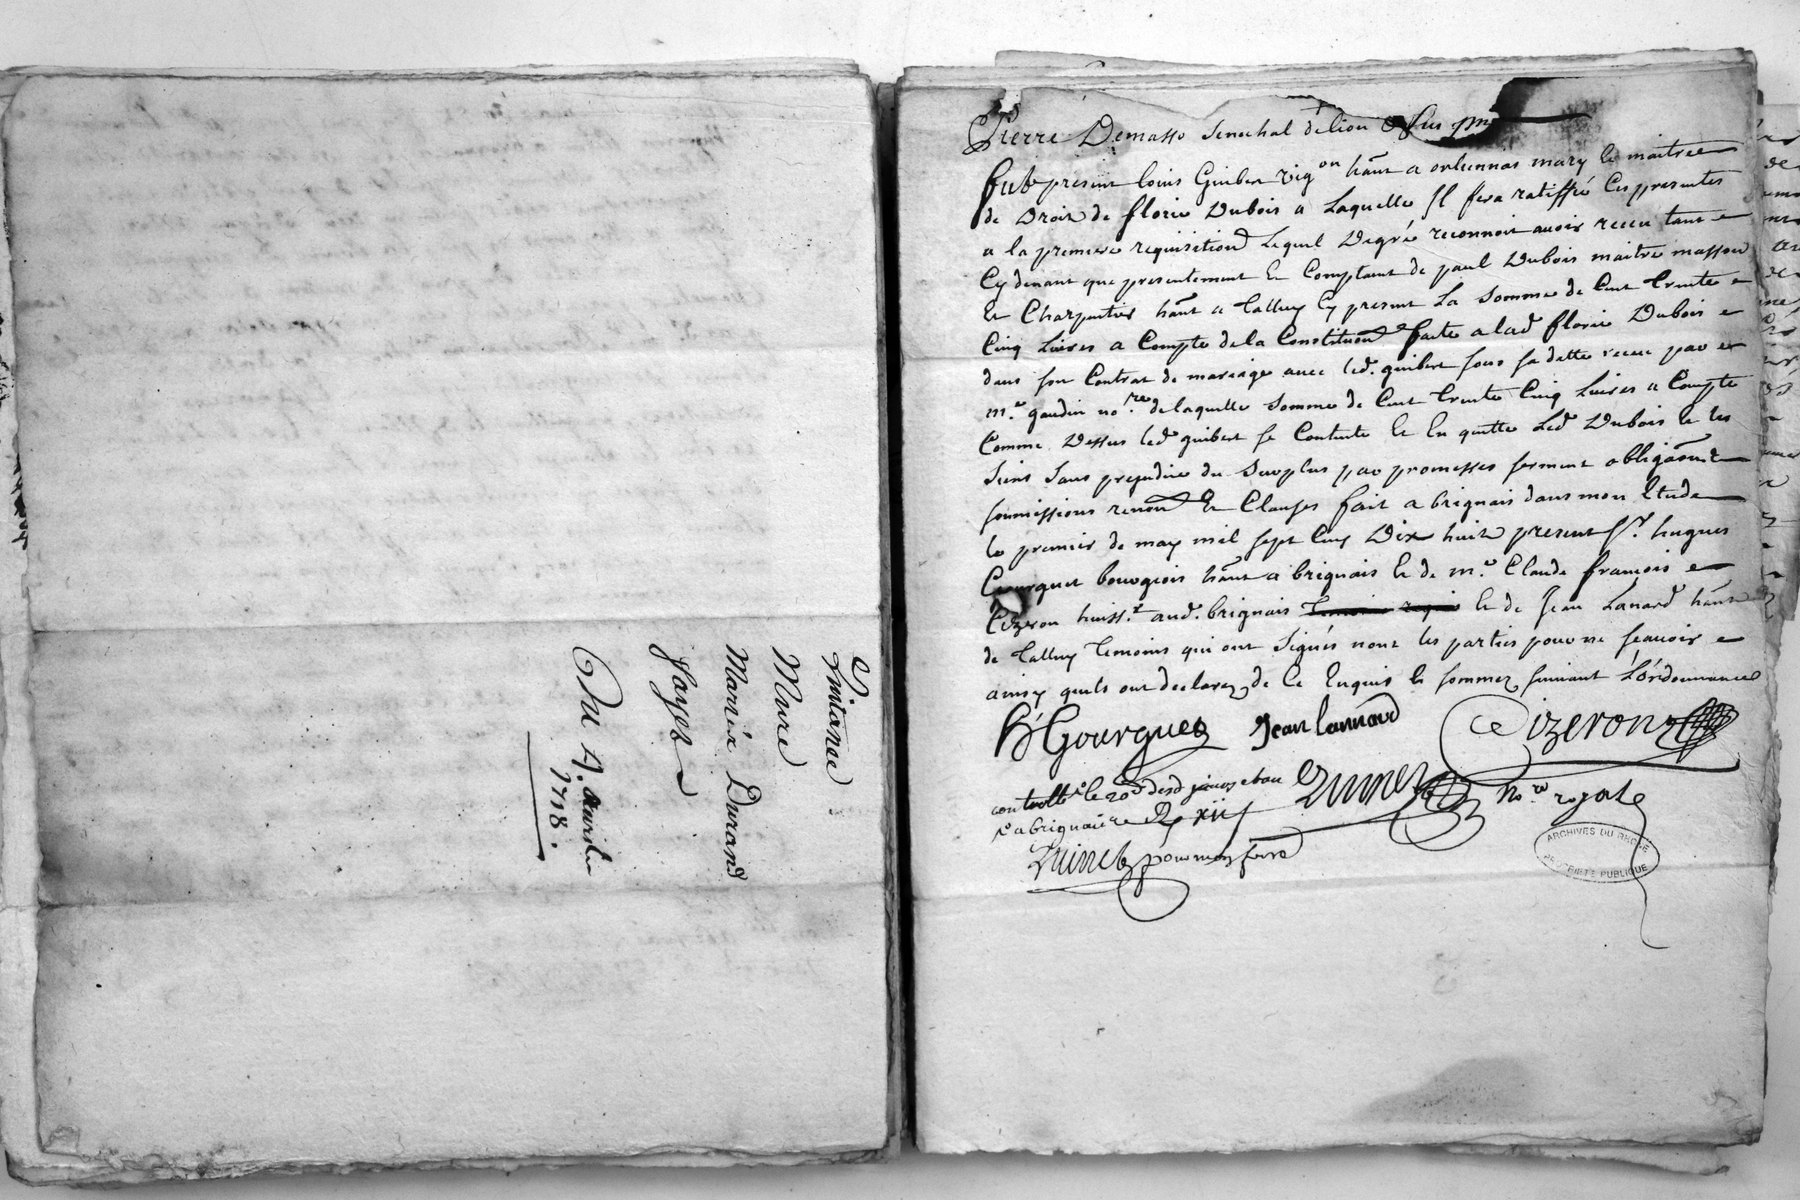 Quitance
Mure
Marrie Durand
Du 4. avril
1718.
Pierre Demasso Senechal de lion
fut present louis Guiber vig.on hãnt a orliennas mary le maitre
de Droit de florie Dubois a Laquelle Il fera ratiffié Ces presentes
a la premiere requisition Lequel Degré reconnoit avoir receu tant
Cydevant que presentement Et Comptant de paul Dubois maitre masson
Et Charpentier hãnt a Talluy Cy present La Somme de Cent trente
Cinq Livres a Compte de la Constitution faite a lad florie Dubois
dans son Contrat de mariage avec led. guibert sous sa datte receu par
m.e gaudin no.re de laquelle Somme de Cent trente Cinq Livres a Compte
Comme Dessus led guibert se Contente Et En quitte Led Dubois Et les
Siens Sans prejudice du Surplus par promesses serment obligãons
soumissions renon Et Clauses fait a brignais dans mon Etude
le premier de may mil sept Cens Dix huit present Sr. hugues
Gourgues bourgeois hãnt a brignais Et de m.e Claude francois
Cizeron huiss.r aud. brignais Et de Jean Lanard hãnt
de Talluy temoins qui ont Signés nont les parties pour ne scavoir
ainsy quels ont declarez de Ce Enquis Et sommez suivant L'ordonnance
H Gourgues Jean lannard Cizeron
controllé le
a brignais
no.re royal
ARCHIVES DU RHÔNE
PROPRIÉTÉ PUBLIQUE